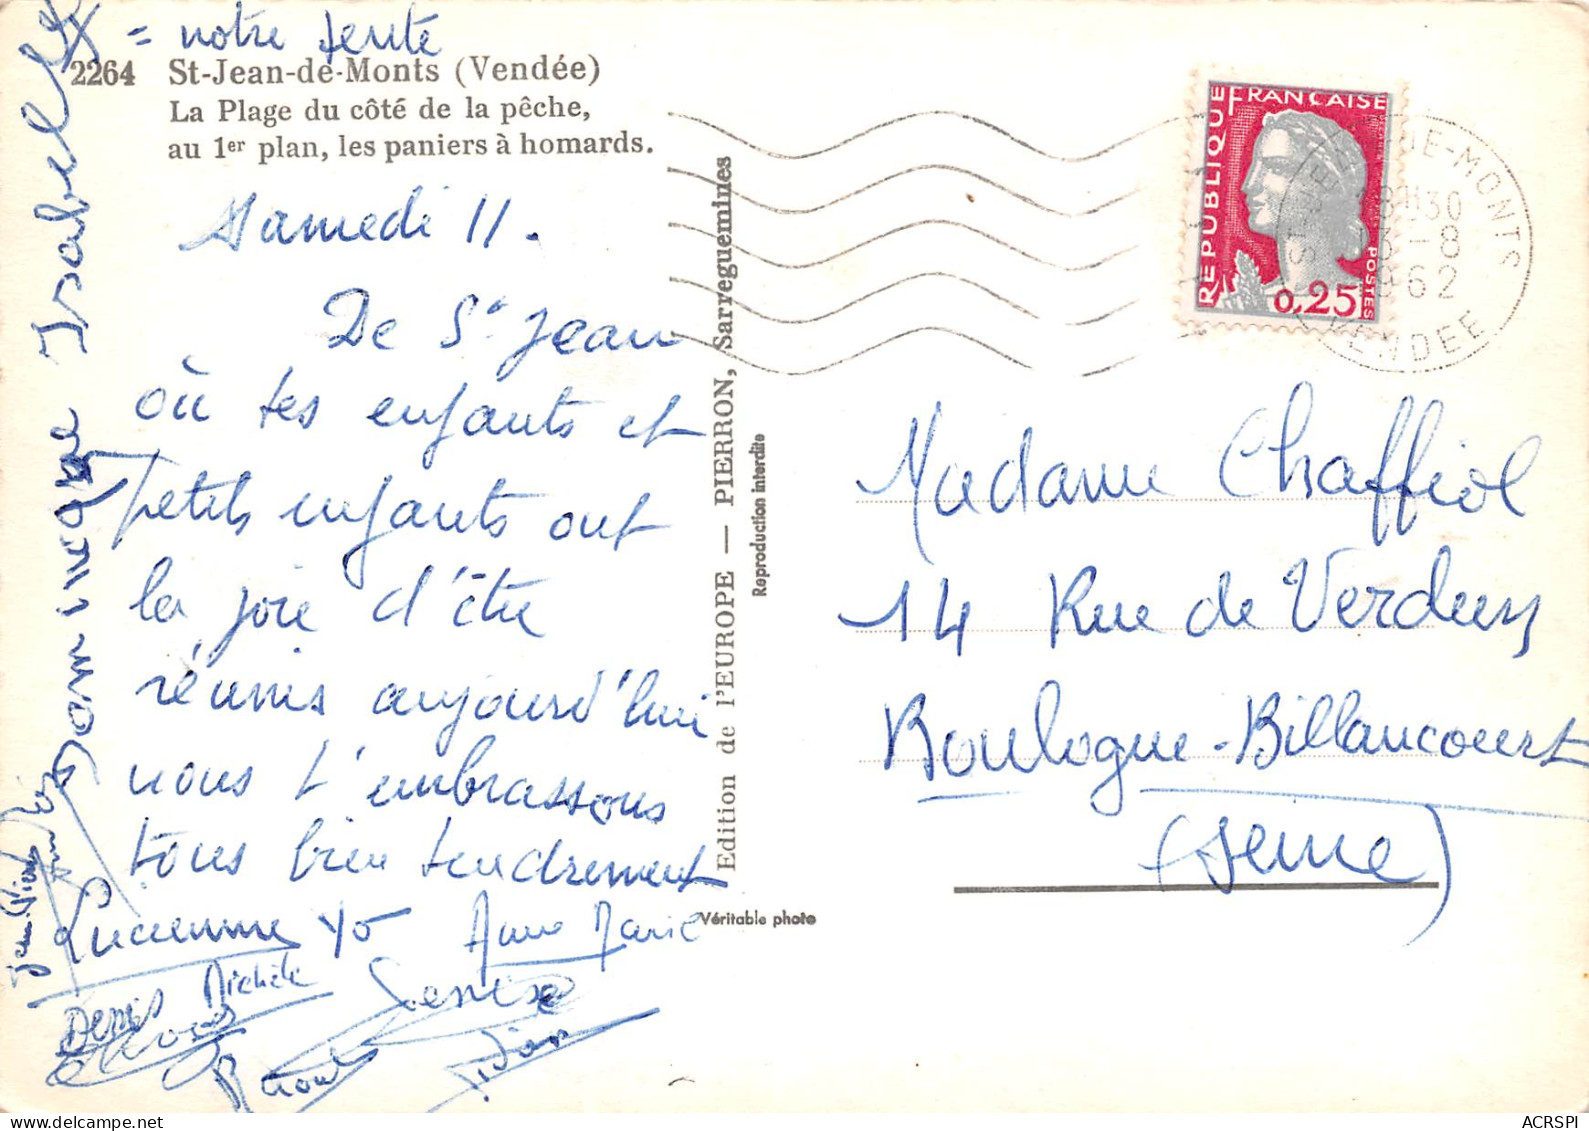 = notre tente
2264 St-Jean-de-Monts (Vendée)
La Plage du côté de la pêche,
au 1er plan, les paniers à homards.
Samedi 11.
De St Jean
où tes enfants et
petits enfants ont
la joie d'être
réunis aujourd'hui
nous t'embrassons
tous bien tendrement
Lucienne Yo Anne Marie
Denis Michèle Denise
Dominique Isabelle
Edition de l'EUROPE — PIERRON, Sarreguemines
Reproduction interdite
Véritable photo
REPUBLIQUE FRANÇAISE
POSTES
0,25
18H30
13-8
1962
VENDEE
Madame Chaffiol
14 Rue de Verdun
Boulogne-Billancourt
(Seine)
ACRSPI